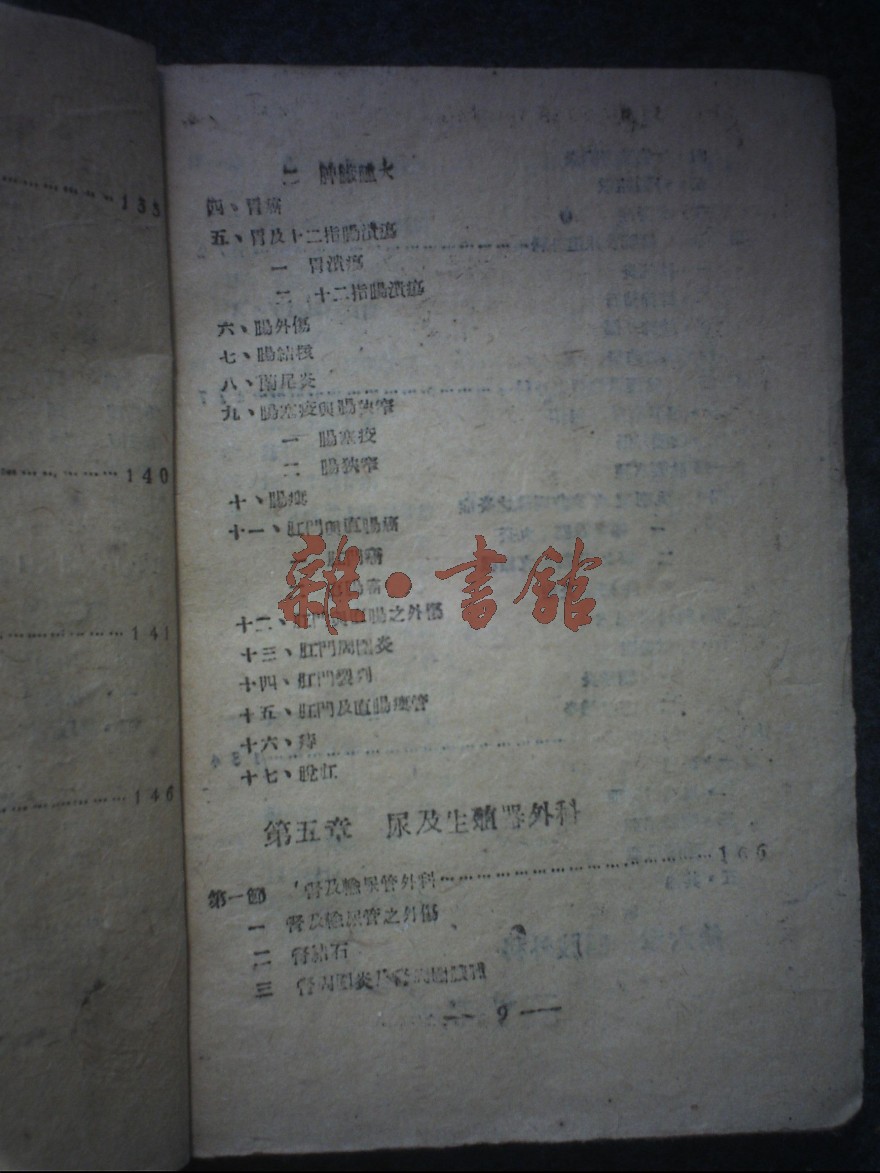 135
140
141
146
二 肿脓肿大
四、胃癌
五、胃及十二指腸潰瘍
一 胃潰瘍
二 十二指腸潰瘍
六、腸外傷
七、腸結核
八、闌尾炎
九、腸塞疫與腸狹窄
一 腸塞疫
二 腸狹窄
十、腸癌
十一、肛門與直腸癌
雜·書館
十二、肛門與直腸之外傷
十三、肛門周圍炎
十四、肛門裂利
十五、肛門及直腸瘻管
十六、痔
十七、脫肛
第五章 尿及生殖器外科
第一節 腎及輸尿管外科……166
一 腎及輸尿管之外傷
二 腎結石
三 腎盂
— 9 —